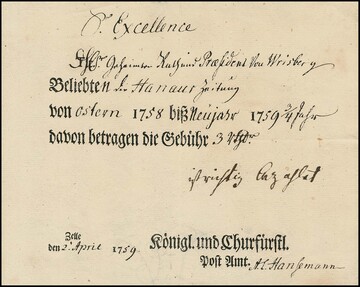 Sr. Excellence
Hr Geheimten Rath und Præsident von Weisberg
Beliebten die Hanaur Zeitung
von ostern 1758 biß Neujahr 1759 3/4 Jahr
davon betragen die Gebühr 3 rthlr
ist richtig bezahlet
Zelle
den 2. April 1759
Königl. und Churfürstl.
Post Amt. Hansemann